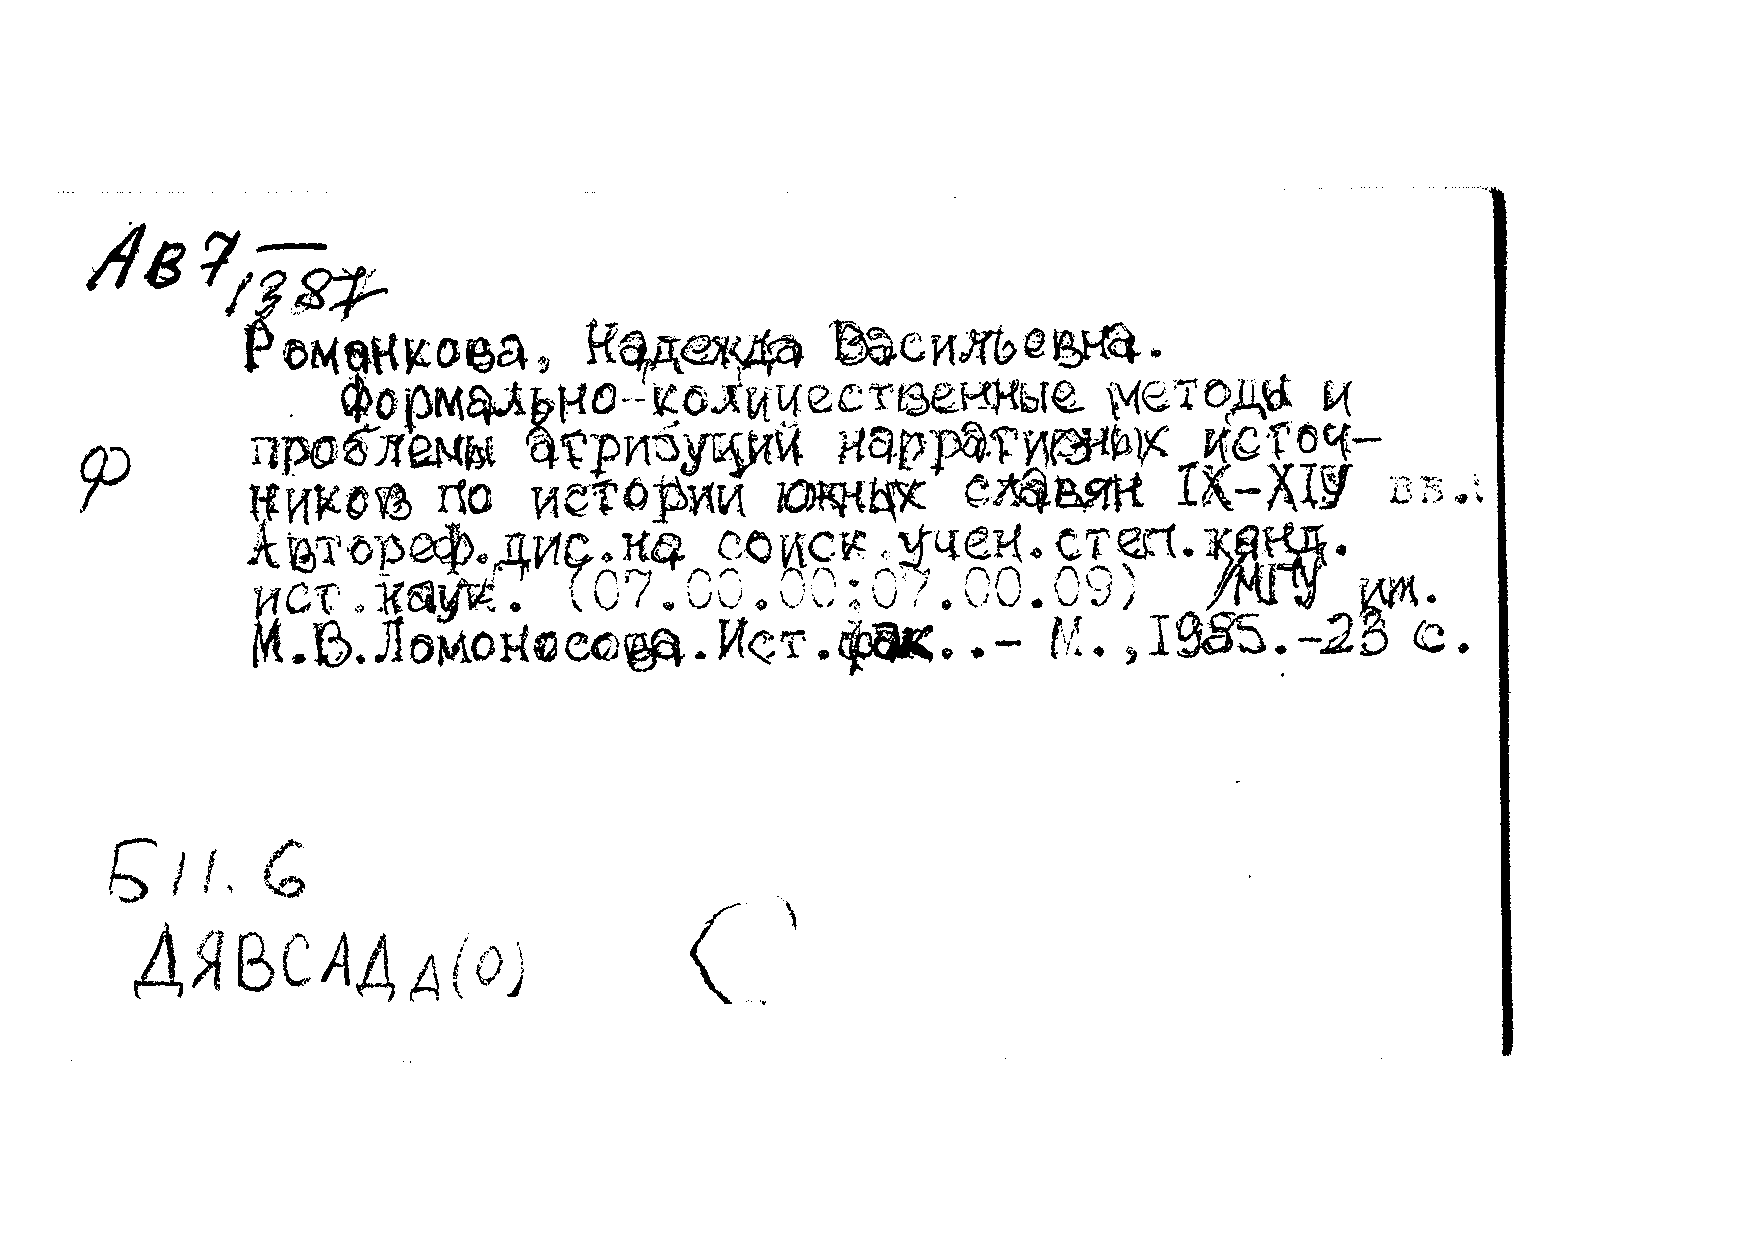 Ав7—
1387
Романкова, Надежда Васильевна.
Формально-количественные методы и
ф
проблемы атрибуций нарративных источ-
ников по истории южных славян IX-XIУ вв.:
Автореф.дис.на соиск.учен.степ.канд.
ист.наук. (07.00.00:07.00.09) /МГУ им.
М.В.Ломоносова.Ист.фак..- М.,1985.-23 с.
Б11.6
ДЯВСАДд(0)